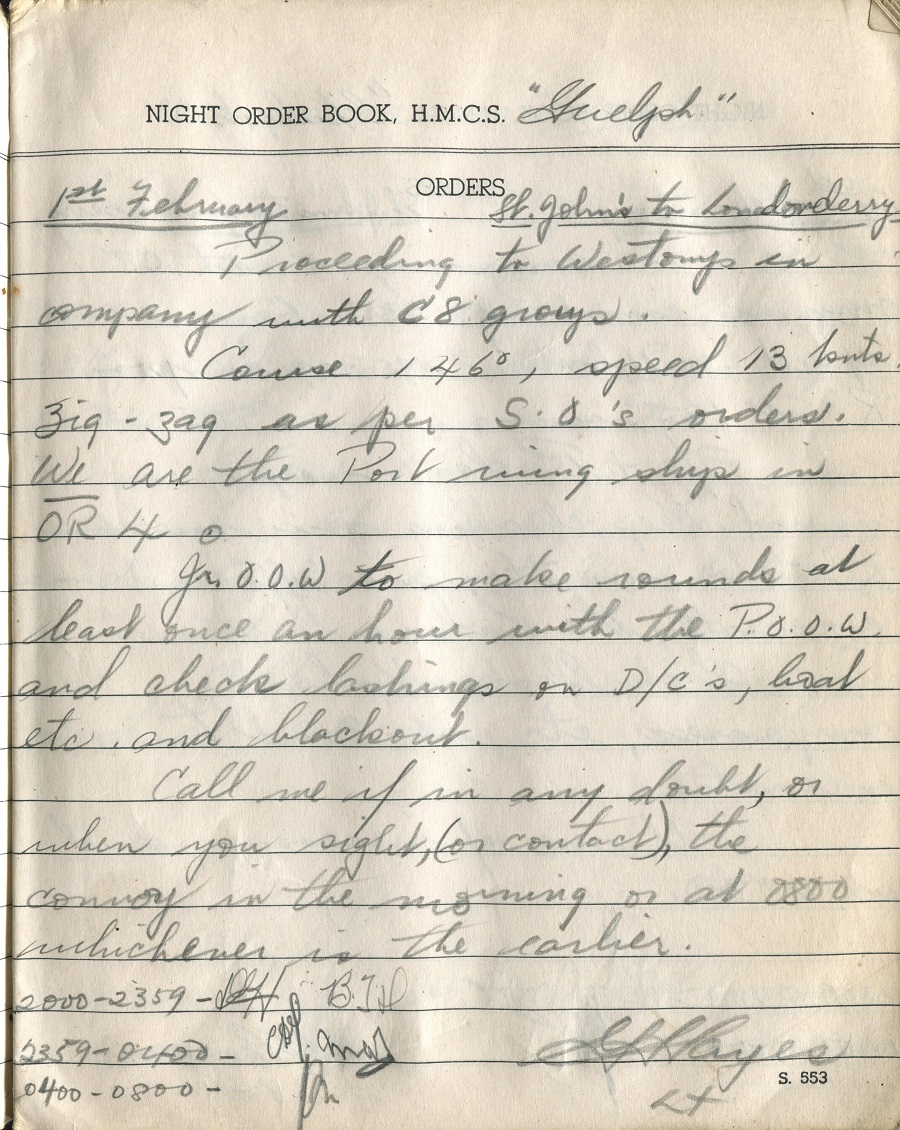 NIGHT ORDER BOOK, H.M.C.S. "Guelph"
ORDERS
1st February St. John's to Londonderry
Proceeding to Westomp in
company with C8 group.
Course 146°, speed 13 knts.
Zig-zag as per S.O's orders.
We are the Port wing ship in
OR 4.
Jr. O.O.W to make rounds at
least once an hour with the P.O.O.W.
and check lashings on D/C's, boat
etc. and blackout.
Call me if in any doubt, or
when you sight, (or contact), the
convoy in the morning or at 0800
whichever is the earlier.
2000-2359 -
2359-0400 -
Hayes
0400-0800 -
S. 553
Lt